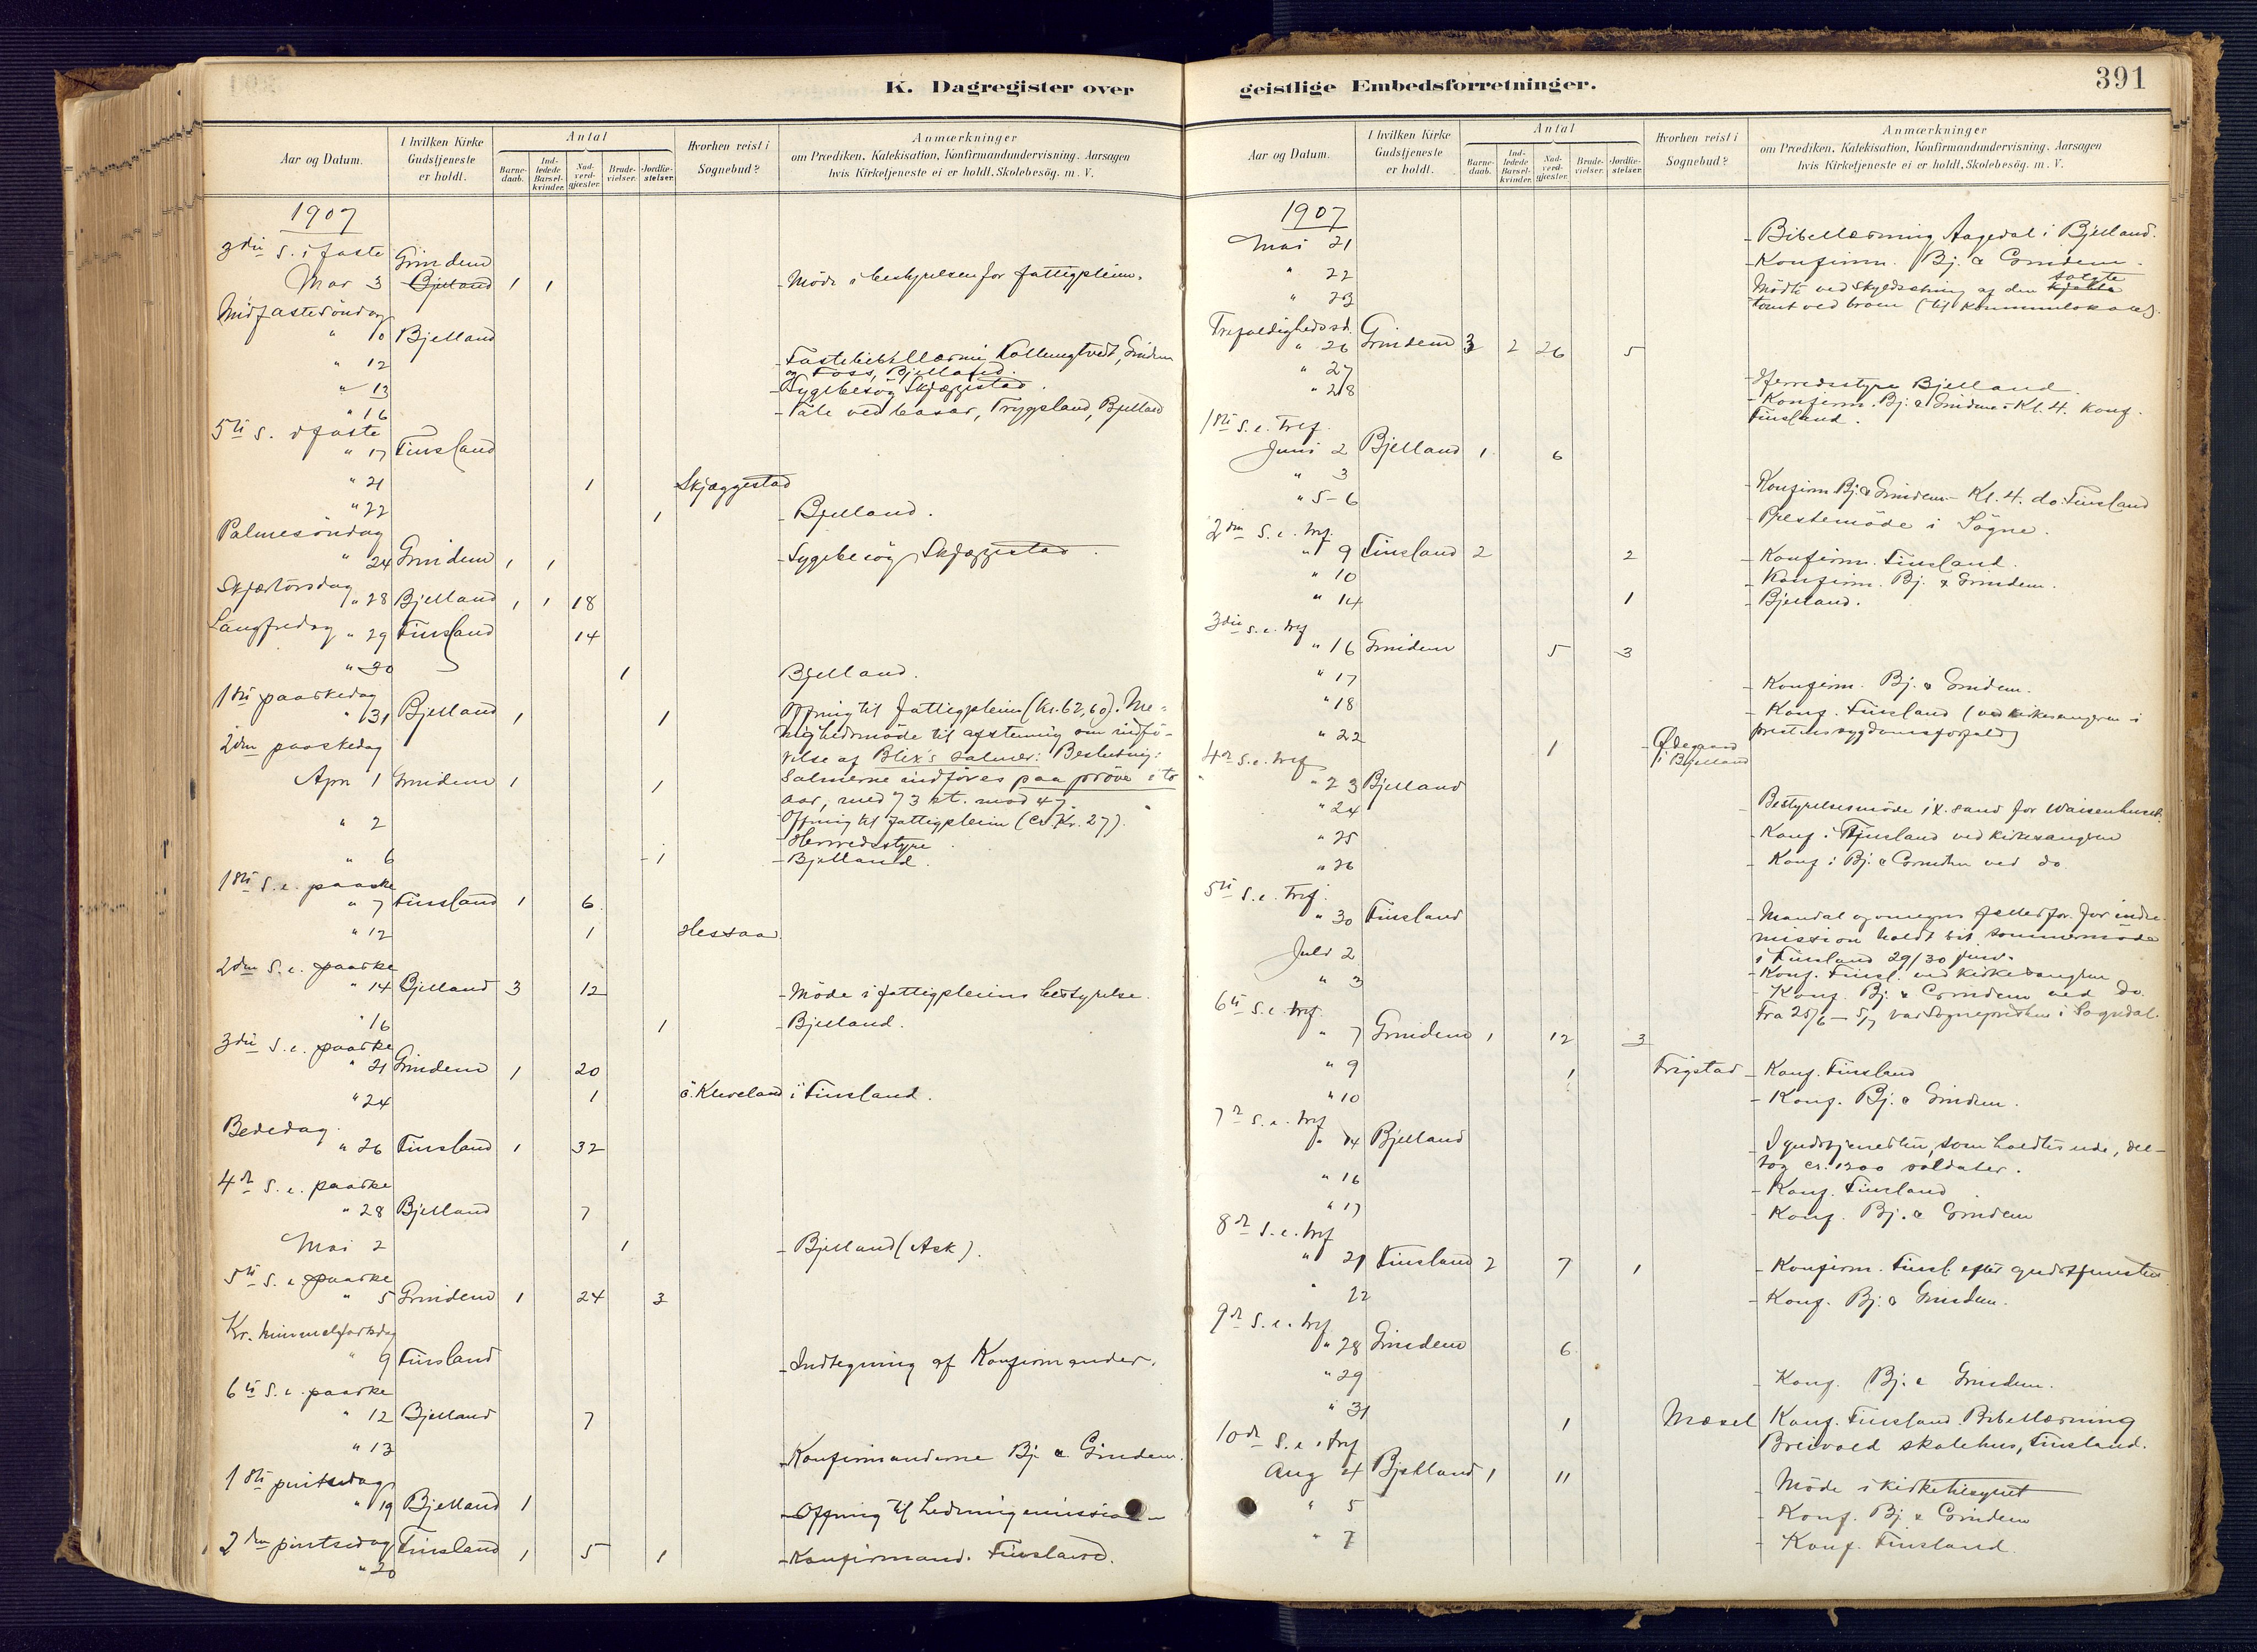 K. Dagregister over
Aar og Datum. I hvilken Kirke Gudstjeneste er holdt. Antal Barnedaab. Indledede Barselkvinder. Nadverdgjester. Brudevielser. Jordfæstelser. Hvorhen reist i Sognebud? Anmærkninger om Prædiken, Katekisation, Konfirmandundervisning, Aarsagen hvis Kirketjeneste ei er holdt, Skolebesög. m. V.
1907
3die S. i faste Grindem
Mar 3 Bjelland 1 1 - Möde i bestyrelsen for fattigpleien.
Midfastesöndag
" 10 Bjelland
" 12 - Fastebibellæsning Grindem
og Foss, Bjelland.
" 13 - Sygebesög Skjæggestad.
" 16 - Tale ved basar, Trygsland, Bjelland
5te S. i faste
" 17 Finsland
" 21 1 Skjæggestad
" 22 1 - Bjelland.
Palmesöndag
" 24 Grindem 1 1 - Sygebesög Skjæggestad.
Skjærtorsdag " 28 Bjelland 1 1 18
Langfredag " 29 Finsland 14
" 30 1 Bjelland.
1ste paaskedag
" 31 Bjelland 1 1 Offring til fattigpleien (kr. 62,60). Me-
nighedsmöde til afstemning om indfö-
2den paaskedag
relse af Blix's salmer: Beslutning:
Apr 1 Grindem 1 1 Salmerne indföres paa pröve i to
aar, med 73 st. mod 47.
" 2 Offring til fattigpleien (ca Kr. 27).
- Herredsstyre.
" 6 1 - Bjelland.
1ste S. e. paaske
" 7 Finsland 1 6
" 12 1 Hessaa
2den S. e. paaske
" 14 Bjelland 3 12 - Möde i fattigpleiens bestyrelse.
" 16 1 - Bjelland.
3die S. e. paaske
" 21 Grindem 1 20
" 24 1 ö. Kleveland i Finsland.
Bededag.
" 26 Finsland 1 32
4de S. e. paaske
" 28 Bjelland 7
Mai 2 1 - Bjelland (Ask).
5te S. e. paaske
" 5 Grindem 1 24 3
Kr. himmelfartsdag
" 9 Finsland - Indtegning af Konfirmander.
6te S. e. paaske
" 12 Bjelland 7
" 13 - Konfirmanderne Bj. & Grindem.
1ste pintsedag
" 19 Bjelland 1 - Offring til hedningemission -
2den pintsedag Finsland 1 5 1 - Konfirmand. Finsland.
" 20
geistlige Embedsforretninger. 391
Aar og Datum. I hvilken Kirke Gudstjeneste er holdt. Antal Barnedaab. Indledede Barselkvinder. Nadverdgjester. Brudevielser. Jordfæstelser. Hvorhen reist i Sognebud? Anmærkninger om Prædiken, Katekisation, Konfirmandundervisning, Aarsagen hvis Kirketjeneste ei er holdt, Skolebesög. m. V.
1907
Mai 21 - Bibellæsning Aagedal i Bjelland.
" 22 - Konfirm. Bj. & Grindem.
" 23 Mödte ved skyldsetning af den solgte
tomt ved broen (til kommunelokale).
Trefoldighedssd.
" 26 Grindem 3 2 26 5
" 27 - Herredsstyre Bjelland
" 28 - Konfirm. Bj. & Grindem - Kl. 4. Konf.
Finsland.
1ste S. e. tref.
Juni 2 Bjelland 1 6
" 3 - Konfirm. Bj. & Grindem - Kl. 4. do. Finsland
" 5-6 - Prestemöde i Sögne.
2den S. e. tref.
" 9 Finsland 2 2 - Konfirm. Finsland.
" 10 - Konfirm. Bj. & Grindem.
" 14 1 - Bjelland.
3die S. e. tref
" 16 Grindem 5 3
" 17 - Konfirm. Bj. & Grindem.
" 18 - Konf. Finsland (ved kirkesangeren i
prestens sygdomsforfald)
" 22 1 - Ödegaard i Bjelland
4de S. e. tref
" 23 Bjelland
" 24 Bestyrelsesmöde i K.sand for Waisenhuset.
" 25 - Konf. i Finsland ved kirkesangeren
" 26 - Konf. i Bj. & Grindem ved do
5te S. e. tref.
" 30 Finsland - Mandal og omegns for indre-
mission holdt sit sommermöde
i Finsland 29/30 juni.
Juli 2 - Konf. Finsl. ved kirkesangeren
" 3 - Konf. Bj. & Grindem ved do.
Fra 25/6 - 5/7 var Sognepresten i Sogndal.
6te S. e. tref.
" 7 Grindem 1 12 3
" 9 1 Frigstad - Konf. Finsland
" 10 - Konf. Bj. & Grindem.
7de S. e. tref
" 14 Bjelland I gudstjenesten, som holdtes ude, del-
tog ca. 1200 soldater.
" 16 - Konf. Finsland
" 17 - Konf. Bj. & Grindem
8de S. e. tref
" 21 Finsland 2 7 1 - Konfirm. Finsl. efter gudstjenesten.
" 22 - Konf. Bj. & Grindem.
9de S. e. tref
" 28 Grindem 6
" 29 - Konf. Bj. & Grindem.
" 31 1 Mæsel Konf. Finsland. Bibellæsning
Breivold skolehus, Finsland.
10de S. e. tref
Aug 4 Bjelland 1 11 - Möde i kirketilsynet
" 5 - Konf. Bj. & Grindem
" 7 - Konf. Finsland.